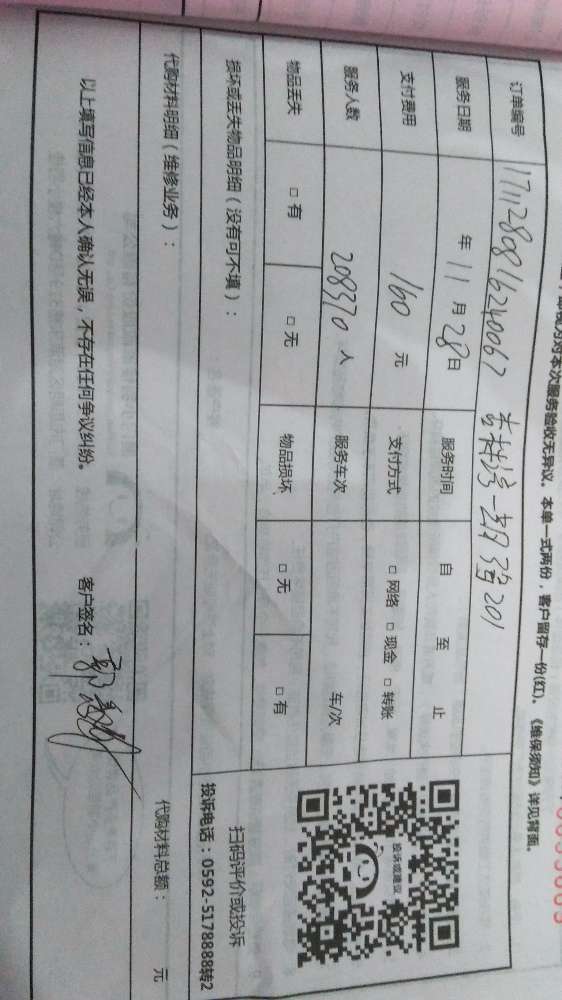 对本次服务验收无异议。本单一式两份，客户留存一份(红)。《维保须知》详见背面。
订单编号 1711280816240067
201
服务日期 年 11 月 28 日 服务时间 自 至 止
支付费用 160 元 支付方式 □ 网络 □ 现金 □ 转账
服务人数 208370 人 服务车次 车/次
物品丢失 □ 有 □ 无 物品损坏 □ 无 □ 有
投诉或建议
扫码评价或投诉
投诉电话：0592-5178888转2
损坏或丢失物品明细（没有可不填）：
代购材料明细（维修业务）： 代购材料总额： 元
以上填写信息已经本人确认无误，不存在任何争议纠纷。 客户签名：